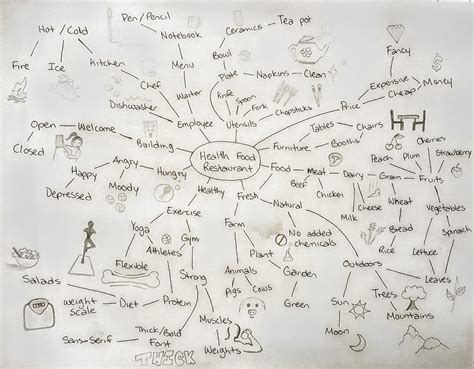 Pen/Pencil
Ceramics - Tea pot
Hot / Cold
Notebook
Bowl
Fancy
Fire
Ice
Kitchen
Menu
Plate
Napkins - Clean
Expensive
Money
Chef
Knife
Spoon
Fork
Chopsticks
Price
Cheap
Dishwasher
Waiter
Open - Welcome
Employee
Utensils
Tables - Chairs
Cherries
Building
Furniture - Booths
Peach
Plum
Strawberry
Closed
Angry
Health Food
Restaurant
Food - Meat - Dairy - Grain - Fruits
Happy
Hungry
Moody
Healthy
Fresh
Natural
Beef
Chicken
Cheese
Wheat
Vegetables
Depressed
Exercise
Milk
Spinach
Yoga
Gym
Farm
No added
chemicals
Bread
Athletes
Plant
Rice
Lettuce
Flexible
Strong
Animals
Garden
Outdoors
Leaves
Salads
Trees
weight
scale
Diet
Protein
Pigs
Cows
Green
Sun
Mountains
Thick/Bold
Font
Muscles
Moon
Sans-Serif
Weights
THICK